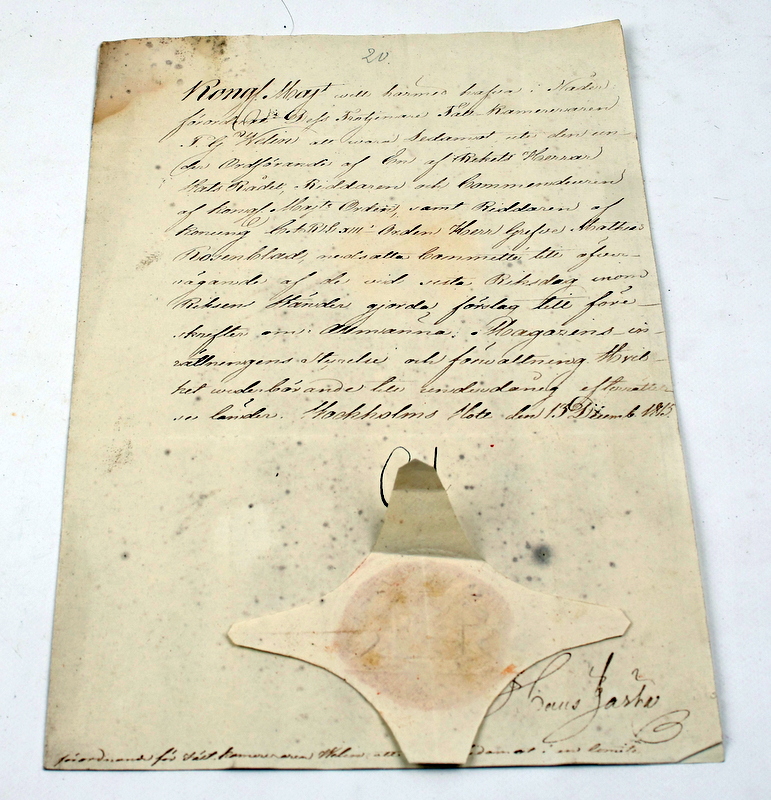 20.
Kongl. Maj:t will härmed hafva i Nåder
förordna Dess Trotjenare Fält-Kamereraren
Welin att vara Ledamot uti den un-
der Ordförande af En af Rikets Herrar
Stats Rådet, Riddaren och Commendeuren
af Kongl. Maj:ts Orden, samt Riddaren af
Konung Carl XIII:s Orden Herr Grefve Mathias
Rosenblad, nedsatta Committé till öfver-
vägande af de vid sista Riksdag inom
Riksens Ständer gjorda förslag till före-
skrifter om Allmänna Magazins in-
rättningens styrelse och förvaltning Hvil-
ket vederbörande till underdånig efterrättel-
se länder. Stockholms Slott den 13 Decemb. 1815.
Hans Järta
förordnande för Fält Kamereraren Welin att Ledamot i en Comité